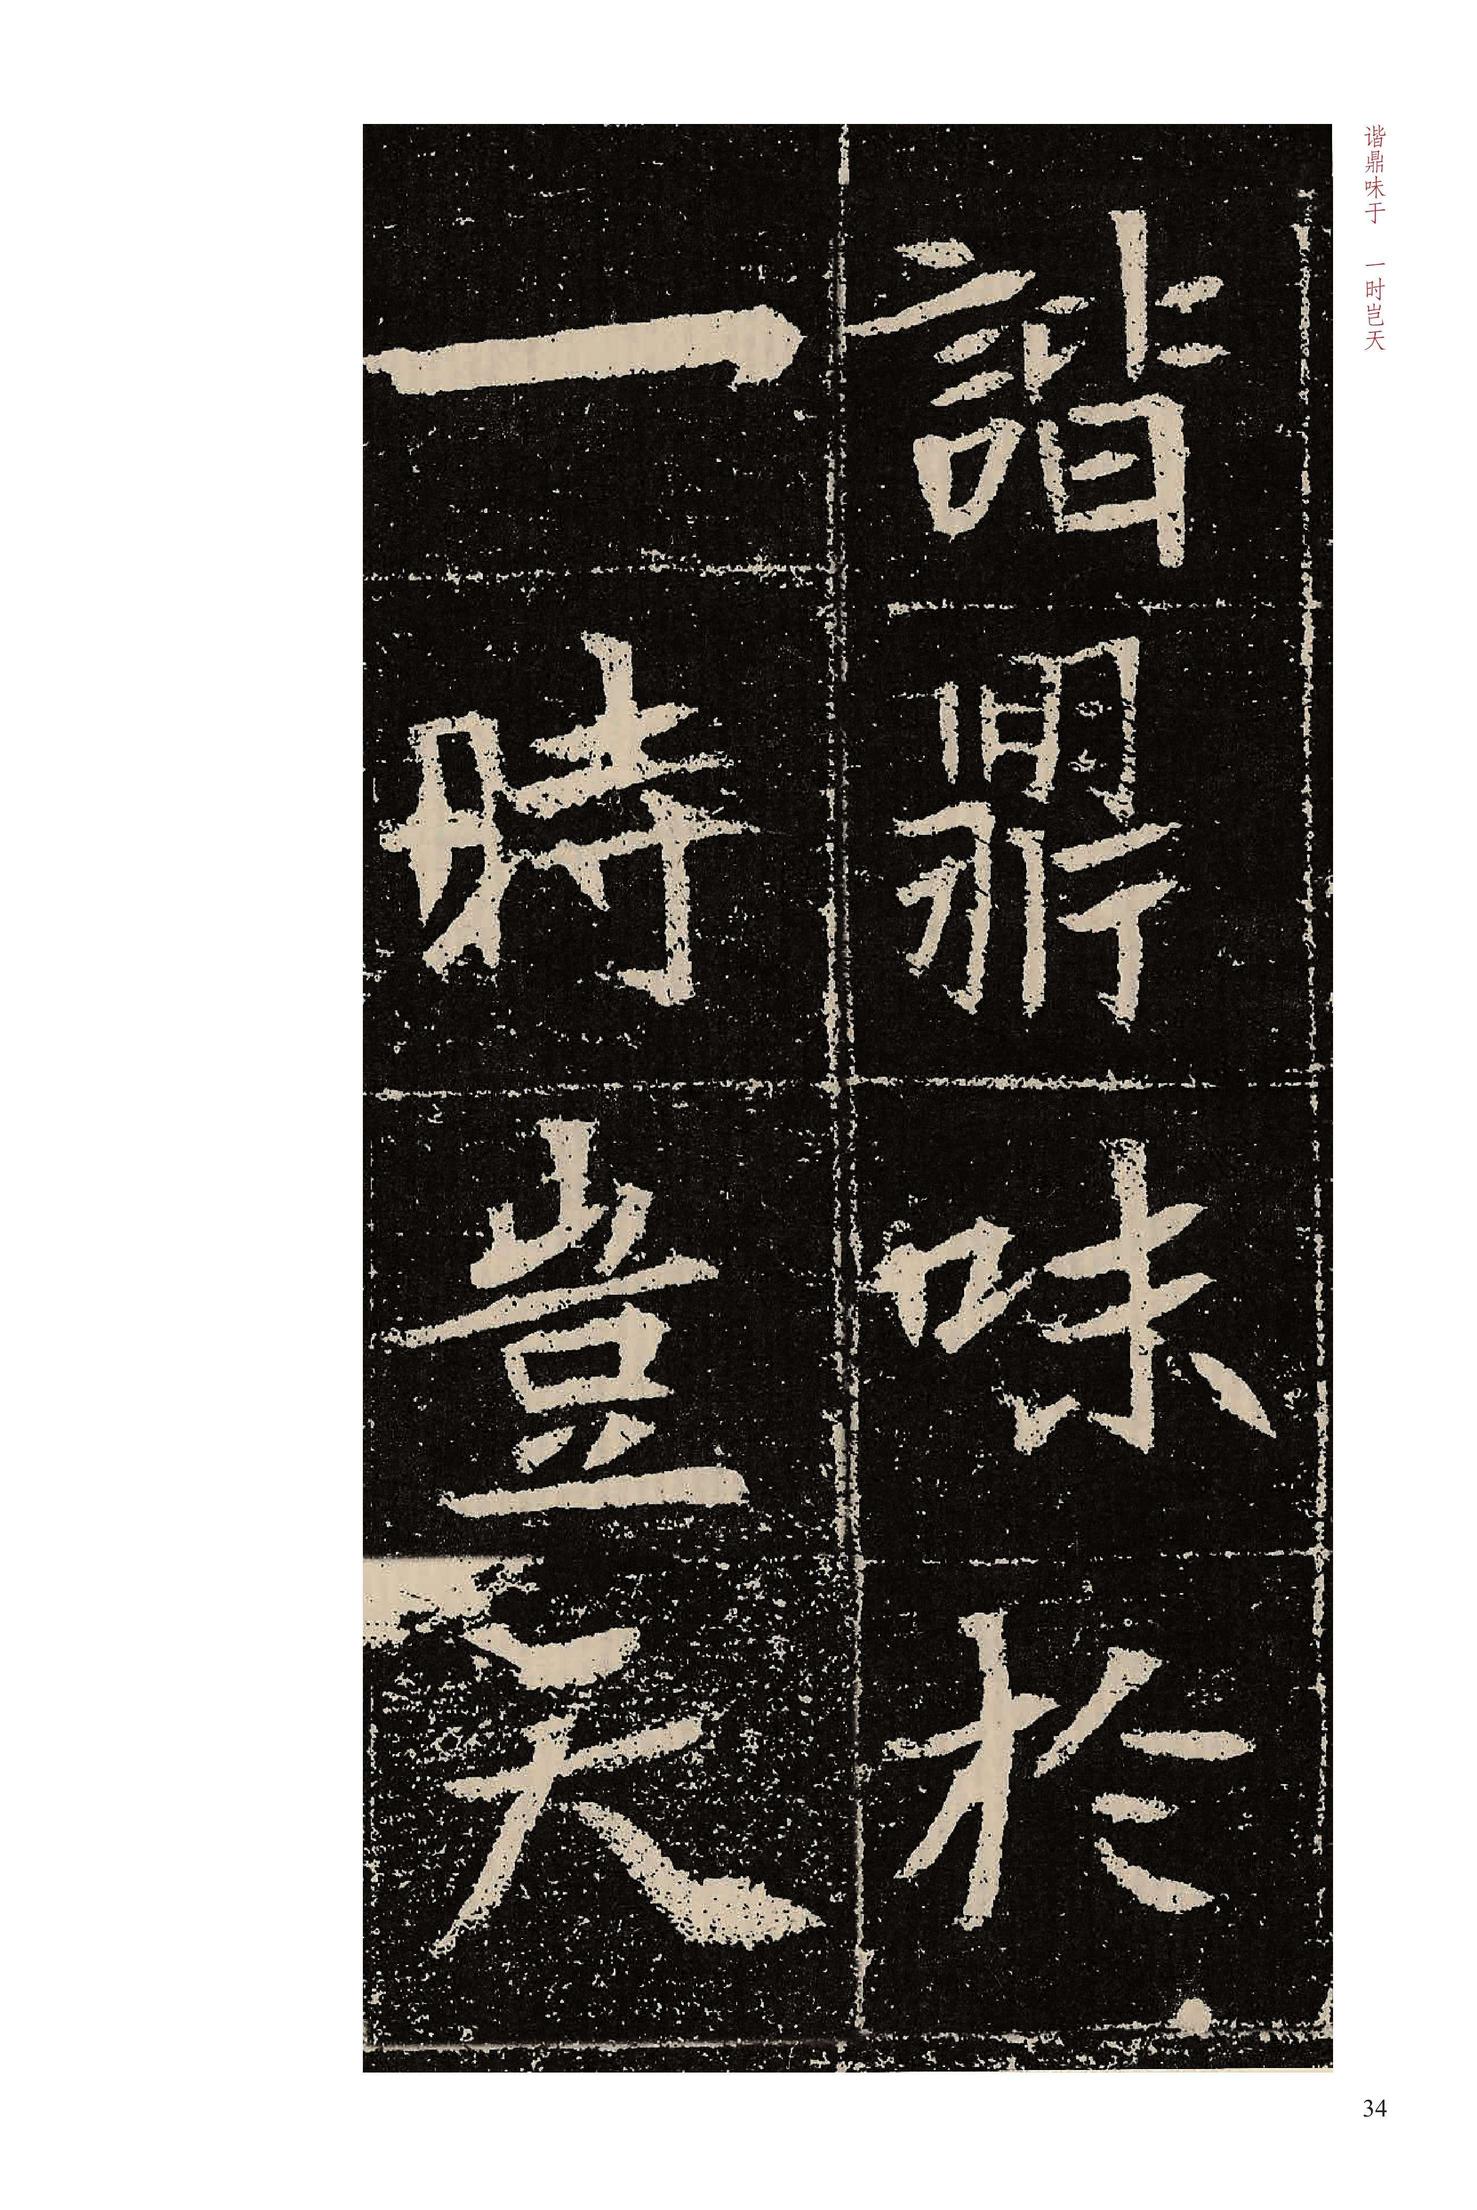 諧鼎味於
一時豈天
谐鼎味于 一时岂天
34